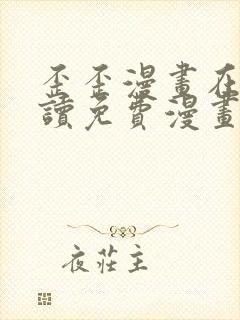 歪歪漫畫在
讀免費漫畫
夜莊主